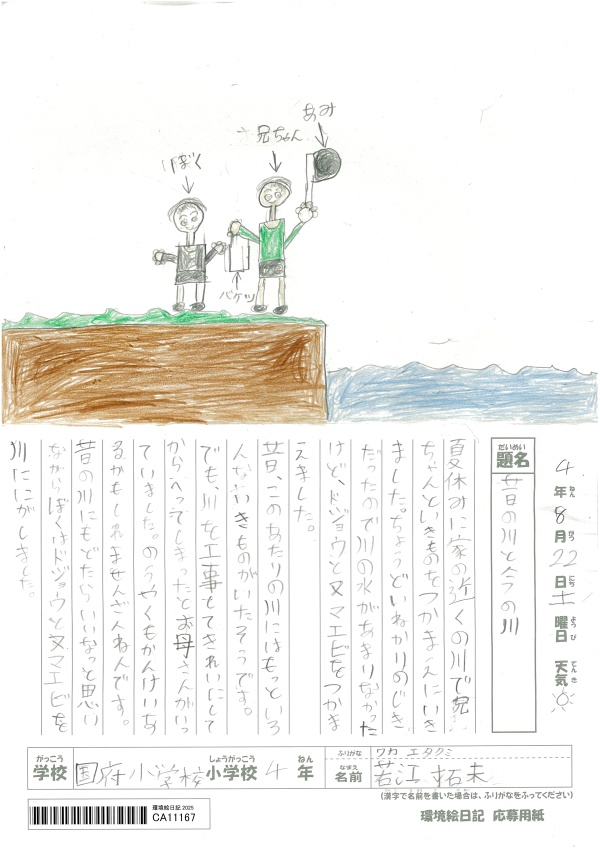 あみ
兄ちゃん
ぼく
バケツ
だいめい
題名
昔の川と今の川
4年8月22日土曜日 天気
ねん がつ にち ようび てんき
夏休みに家の近くの川で兄
ちゃんといきものをつかまえにいき
ました。ちょうどいねかりのじき
だったので川の水があまりなかった
けど、ドジョウとヌマエビをつかま
えました。
昔、このあたりの川にはもっといろ
んないきものがいたそうです。
でも、川を工事してきれいにして
からへってしまったとお母さんがいっ
ていました。のうやくもかんけいあ
るかもしれませんざんねんです。
昔の川にもどたらいいなっと思い
ながらぼくはドジョウとヌマエビを
川ににがしました。
がっこう しょうがっこう ねん
学校 国府小学校 小学校 4年
ふりがな ワカエタクミ
なまえ
名前 若江拓未
(漢字で名前を書いた場合は、ふりがなをふってください)
環境絵日記 2025
CA11167
環境絵日記 応募用紙